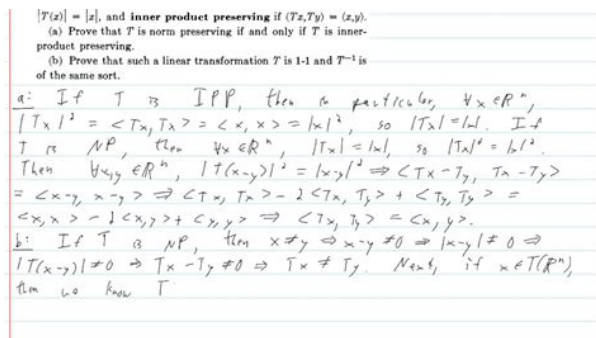 |T(x)| = |x|, and inner product preserving if ⟨Tx,Ty⟩ = ⟨x,y⟩.
(a) Prove that T is norm preserving if and only if T is inner-
product preserving.
(b) Prove that such a linear transformation T is 1-1 and T⁻¹ is
of the same sort.
a: If T is IPP, then in particular, ∀x∈ℝⁿ,
|Tx|² = <Tx, Tx> = <x, x> = |x|², so |Tx| = |x|. If
T is NP, then ∀x∈ℝⁿ, |Tx| = |x|, so |Tx|² = |x|².
Then ∀x,y∈ℝⁿ, |T(x-y)|² = |x-y|² ⇒ <Tx-Ty, Tx-Ty>
= <x-y, x-y> ⇒ <Tx, Tx> - 2<Tx, Ty> + <Ty, Ty> =
<x, x> - 2<x,y> + <y, y> ⇒ <Tx, Ty> = <x, y>.
b: If T is NP, then x≠y ⇒ x-y ≠0 ⇒ |x-y| ≠ 0 ⇒
|T(x-y)| ≠0 ⇒ Tx - Ty ≠0 ⇒ Tx ≠ Ty. Next, if x∈T(ℝⁿ),
then we know T